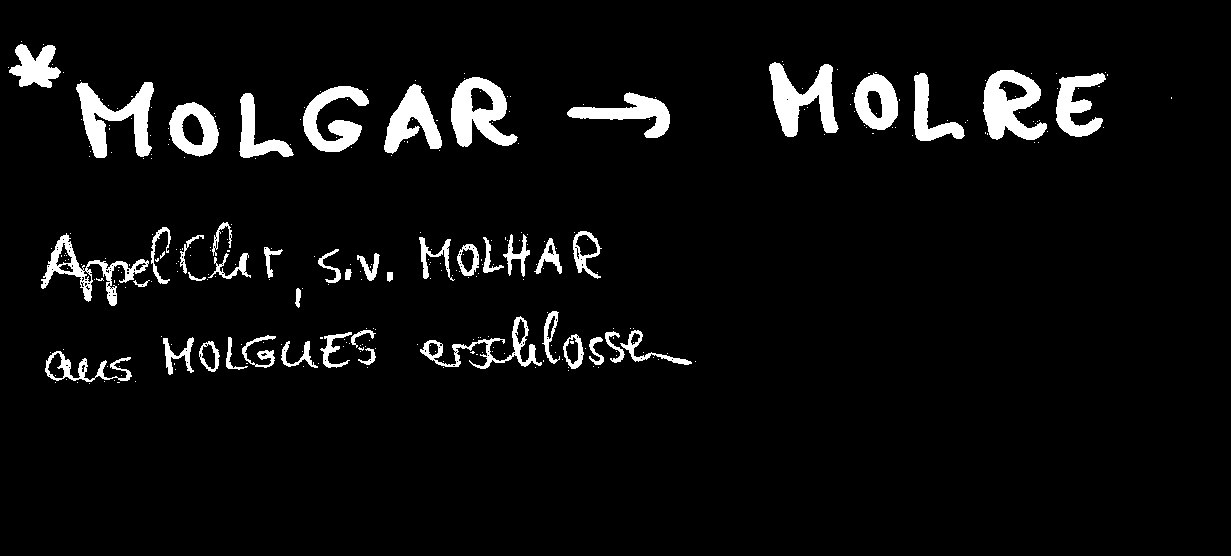 *MOLGAR → MOLRE
AppelChr, s.v. MOLHAR
aus MOLGUES erschlossen